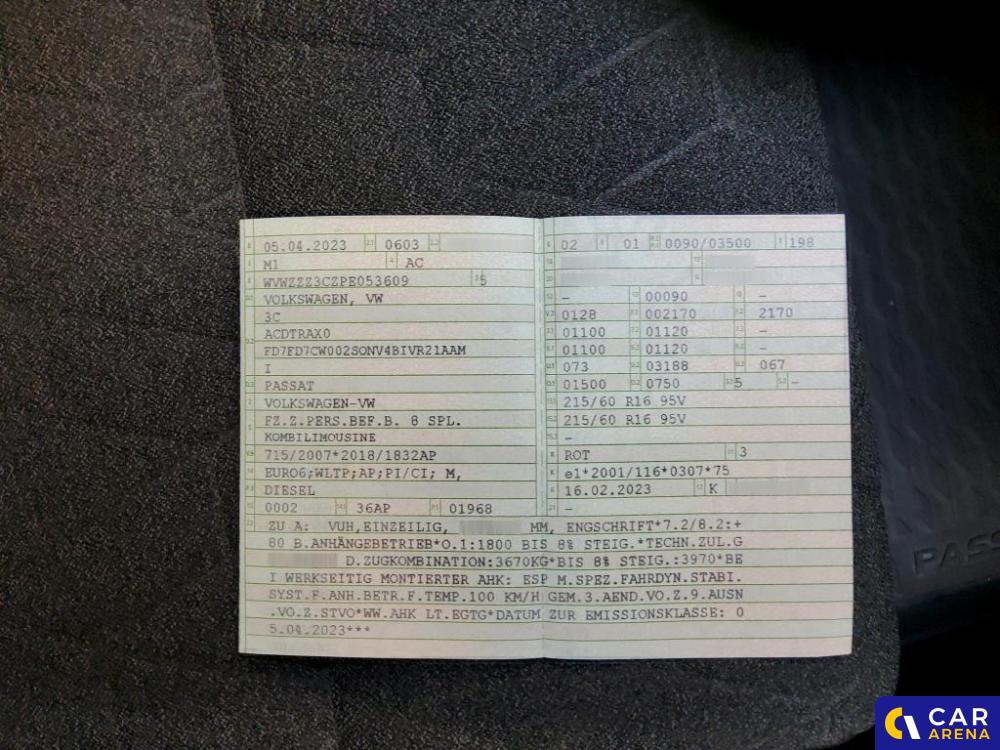 05.04.2023 0603
M1 AC
WVWZZZ3CZPE053609 5
VOLKSWAGEN, VW
3C
ACDTRAX0
FD7FD7CW002SONV4BIVR21AAM
I
PASSAT
VOLKSWAGEN-VW
FZ.Z.PERS.BEF.B. 8 SPL.
KOMBILIMOUSINE
715/2007*2018/1832AP
EURO6;WLTP;AP;PI/CI; M,
DIESEL
0002 36AP 01968
02 01 0090/03500 198
- 00090 -
0128 002170 2170
01100 01120 -
01100 01120 -
073 03188 067
01500 0750 5 -
215/60 R16 95V
215/60 R16 95V
-
ROT 3
e1*2001/116*0307*75
16.02.2023 K
-
ZU A: VUH,EINZEILIG, MM, ENGSCHRIFT*7.2/8.2:+
80 B.ANHÄNGEBETRIEB*O.1:1800 BIS 8% STEIG.*TECHN.ZUL.G
D.ZUGKOMBINATION:3670KG*BIS 8% STEIG.:3970*BE
I WERKSEITIG MONTIERTER AHK: ESP M.SPEZ.FAHRDYN.STABI.
SYST.F.ANH.BETR.F.TEMP.100 KM/H GEM.3.AEND.VO.Z.9.AUSN
.VO.Z.STVO*WW.AHK LT.EGTG*DATUM ZUR EMISSIONSKLASSE: 0
5.04.2023***
PASS
CAR
ARENA